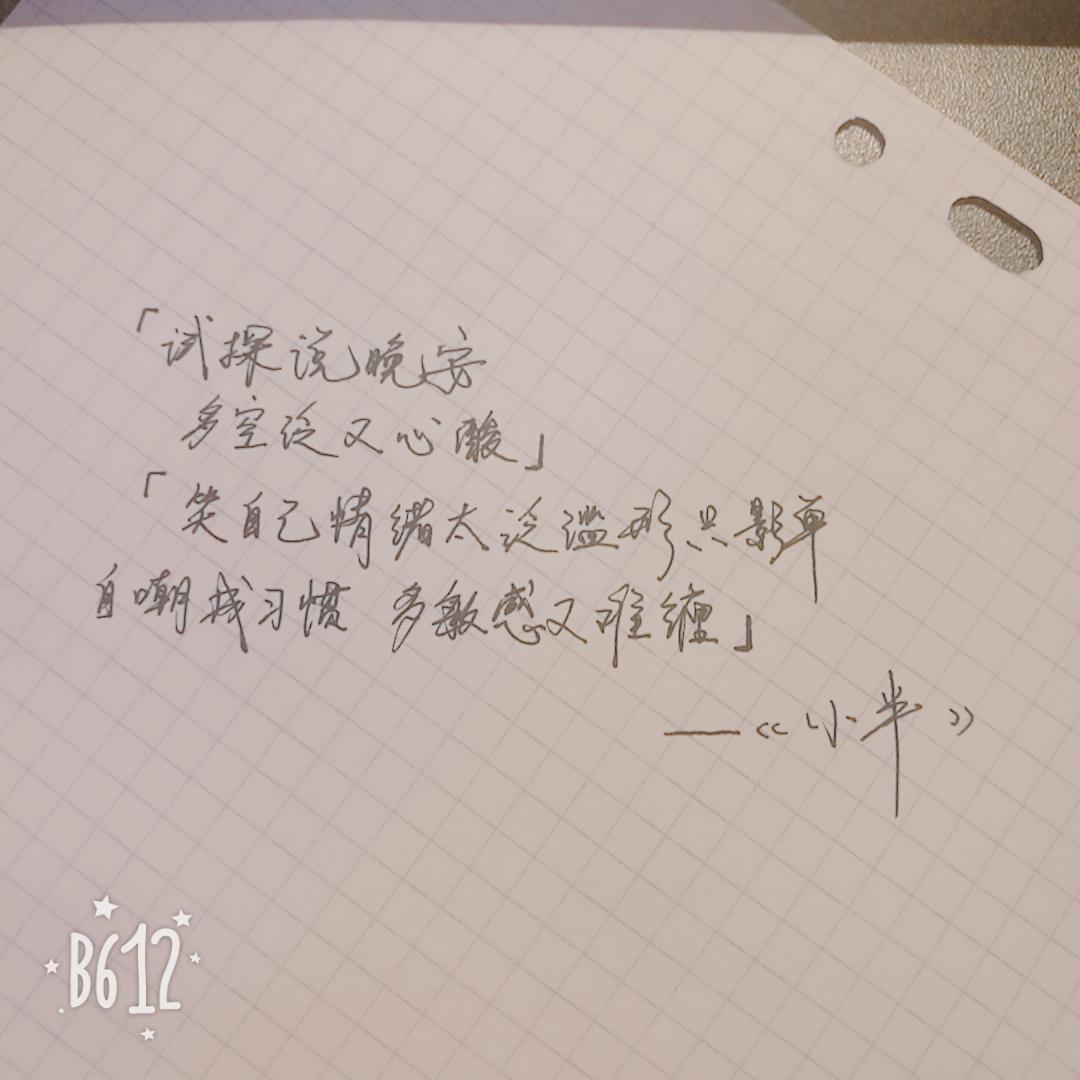 「试探说晚安
多空泛又心酸」
「笑自己情绪太泛滥形只影单
自嘲成习惯 多敏感又难缠」
——《小半》
B612